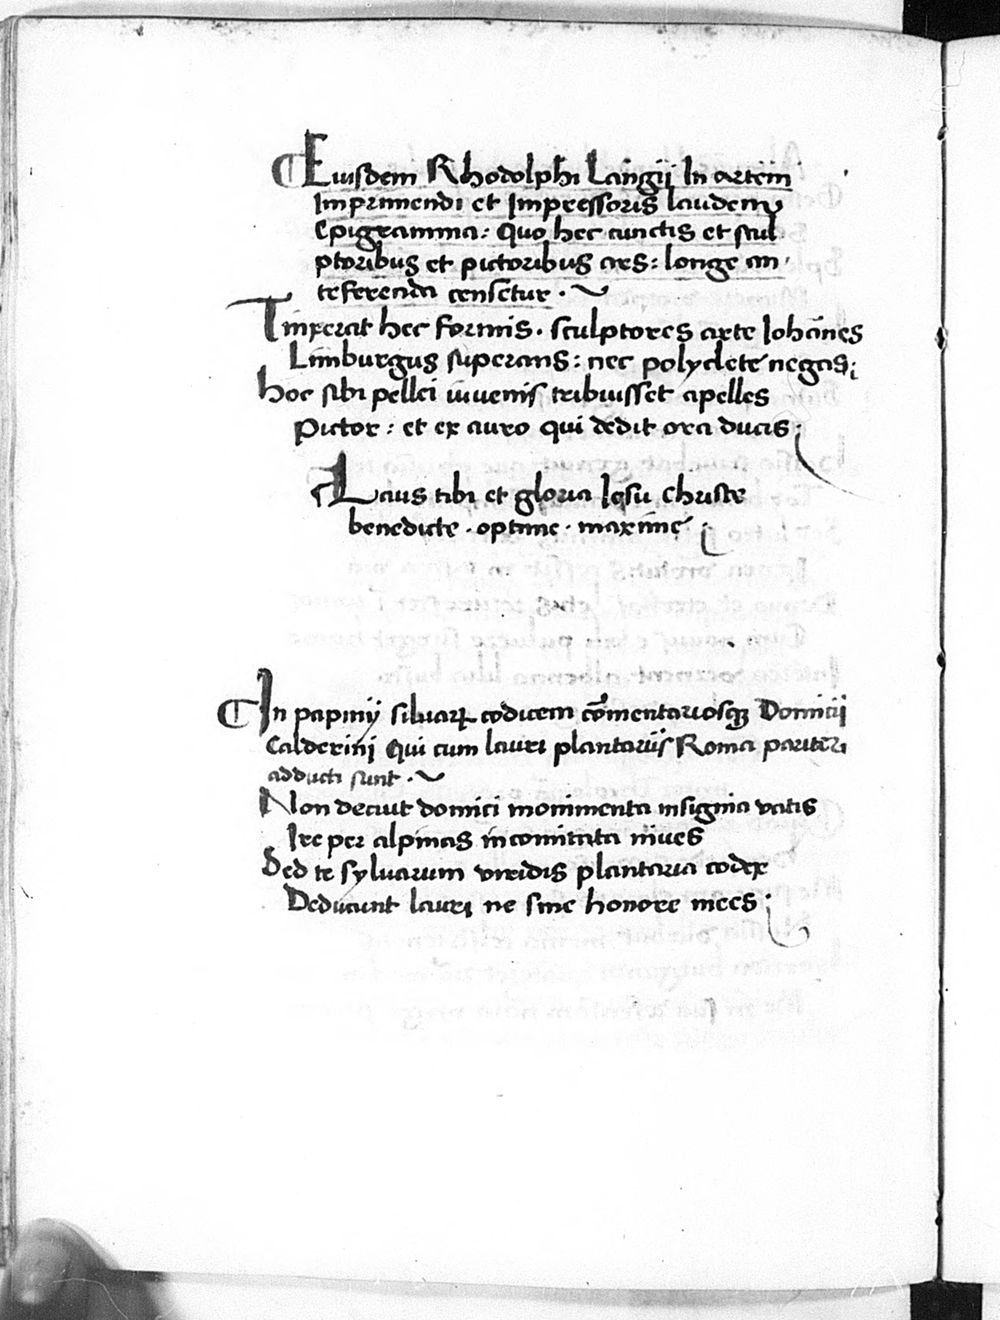 Eiusdem Rhodolphi Langij In artem
Imprimendi et Impressoris laudem
Epigramma: Quo hec cunctis et scul
ptoribus et pictoribus ars: longe an
teferenda censetur.
Tinxerat hec formis. sculptores arte Iohānes
Limburgus superans: nec polyclete negas;
hoc sibi pellei iuuenis tribuisset apelles
Pictor: et ex auro qui dedit ora ducis;
Laus tibi et gloria Iesu christe
benedicte. optime. maxime;
In papinij siluarꝝ codicem cōmentariosqꝫ Domicij
Calderini Qui cum lauri plantariis Roma pariter
adducti sunt.
Non decuit domici monimenta insignia vatis
Ire per alpinas incomitata niues
Sed te syluarum viridis plantaria codex
Deducunt lauri ne sine honore mees;